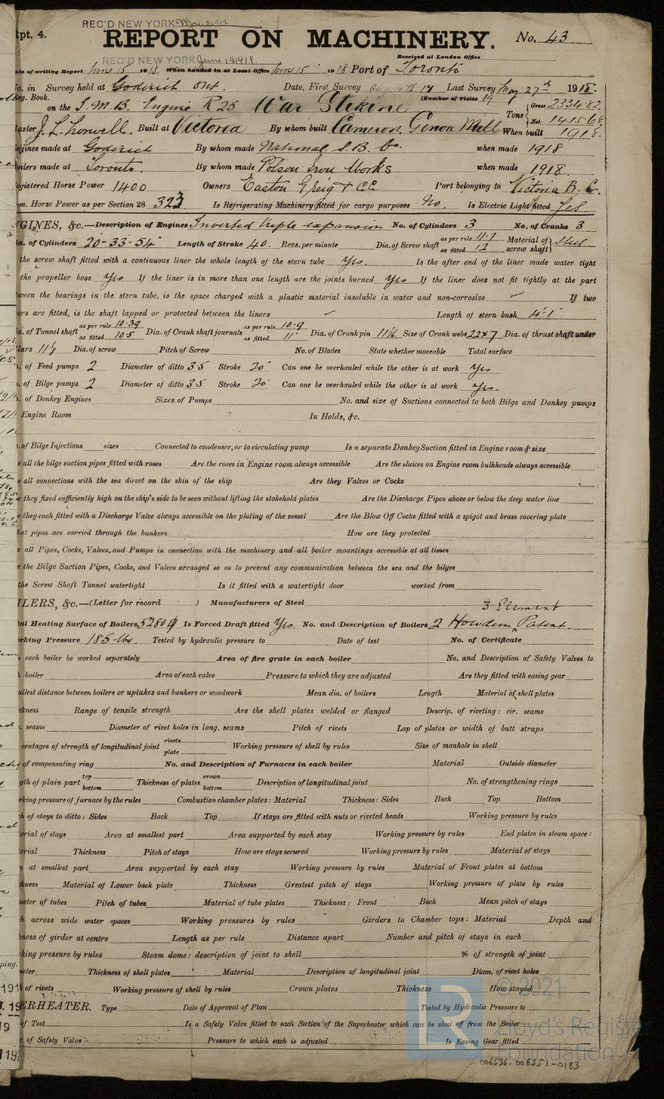 REC'D NEW YORK
Rpt. 4. REPORT ON MACHINERY. No. 43
REC'D NEW YORK June 19 1918. Received at London Office
Date of writing Report June 15 1918 When handed in at Local Office June 15 1918 Port of Toronto
No. in Survey held at Goderich Ont. Date, First Survey Last Survey May 27th 1918
Reg. Book. on the S.M.B. Engine R 25 War Stikine (Number of Visits 19 Tons Gross 2334.82 Net 1415.68
Master Built at Victoria By whom built Cameron, Genoa Mill When built 1918
Engines made at Goderich By whom made National S.B. Co. when made 1918
Boilers made at Toronto. By whom made Polson Iron Works when made 1918.
Registered Horse Power 1400 Owners Port belonging to Victoria B.C.
Nom. Horse Power as per Section 28 323 Is Refrigerating Machinery fitted for cargo purposes No. Is Electric Light fitted Yes
ENGINES, &c.—Description of Engines Inverted triple expansion No. of Cylinders 3 No. of Cranks 3
Dia. of Cylinders 20-33-54 Length of Stroke 40. Revs. per minute Dia. of Screw shaft as per rule 11.7 as fitted 12 Material of screw shaft) Steel
the screw shaft fitted with a continuous liner the whole length of the stern tube Yes. Is the after end of the liner made water tight
the propeller boss Yes If the liner is in more than one length are the joints burned Yes If the liner does not fit tightly at the part
between the bearings in the stern tube, is the space charged with a plastic material insoluble in water and non-corrosive — If two
liners are fitted, is the shaft lapped or protected between the liners — Length of stern bush 4'-1"
Dia. of Tunnel shaft as per rule 10.39 as fitted 10.5 Dia. of Crank shaft journals as per rule 10.9 as fitted 11" Dia. of Crank pin Size of Crank webs 22×7 Dia. of thrust shaft under
collars 11½ Dia. of screw Pitch of Screw No. of Blades State whether moveable Total surface
No. of Feed pumps 2 Diameter of ditto 3.5 Stroke 20" Can one be overhauled while the other is at work Yes
No. of Bilge pumps 2 Diameter of ditto 3.5 Stroke 20 Can one be overhauled while the other is at work Yes
No. of Donkey Engines Sizes of Pumps No. and size of Suctions connected to both Bilge and Donkey pumps
Engine Room In Holds, &c.
No. of Bilge Injections sizes Connected to condenser, or to circulating pump Is a separate Donkey Suction fitted in Engine room & size
all the bilge suction pipes fitted with roses Are the roses in Engine room always accessible Are the sluices on Engine room bulkheads always accessible
all connections with the sea direct on the skin of the ship Are they Valves or Cocks
they fixed sufficiently high on the ship's side to be seen without lifting the stokehold plates Are the Discharge Pipes above or below the deep water line
they each fitted with a Discharge Valve always accessible on the plating of the vessel Are the Blow Off Cocks fitted with a spigot and brass covering plate
What pipes are carried through the bunkers How are they protected
all Pipes, Cocks, Valves, and Pumps in connection with the machinery and all boiler mountings accessible at all times
the Bilge Suction Pipes, Cocks, and Valves arranged so as to prevent any communication between the sea and the bilges
the Screw Shaft Tunnel watertight Is it fitted with a watertight door worked from
BOILERS, &c.—(Letter for record ) Manufacturers of Steel
3 Element
Total Heating Surface of Boilers 5280 ϕ Is Forced Draft fitted Yes. No. and Description of Boilers 2 Howden Patent
Working Pressure 185 lb. Tested by hydraulic pressure to Date of test No. of Certificate
each boiler be worked separately Area of fire grate in each boiler No. and Description of Safety Valves to
boiler Area of each valve Pressure to which they are adjusted Are they fitted with easing gear
Smallest distance between boilers or uptakes and bunkers or woodwork Mean dia. of boilers Length Material of shell plates
Thickness Range of tensile strength Are the shell plates welded or flanged Descrip. of riveting: cir. seams
seams Diameter of rivet holes in long. seams Pitch of rivets Lap of plates or width of butt straps
Percentages of strength of longitudinal joint rivets plate Working pressure of shell by rules Size of manhole in shell
of compensating ring No. and Description of Furnaces in each boiler Material Outside diameter
Length of plain part top bottom Thickness of plates crown bottom Description of longitudinal joint No. of strengthening rings
Working pressure of furnace by the rules Combustion chamber plates: Material Thickness: Sides Back Top Bottom
Pitch of stays to ditto: Sides Back Top If stays are fitted with nuts or riveted heads Working pressure by rules
Material of stays Area at smallest part Area supported by each stay Working pressure by rules End plates in steam space:
Material Thickness Pitch of stays How are stays secured Working pressure by rules Material of stays
at smallest part Area supported by each stay Working pressure by rules Material of Front plates at bottom
Thickness Material of Lower back plate Thickness Greatest pitch of stays Working pressure of plate by rules
Diameter of tubes Pitch of tubes Material of tube plates Thickness: Front Back Mean pitch of stays
Pitch across wide water spaces Working pressures by rules Girders to Chamber tops: Material Depth and
thickness of girder at centre Length as per rule Distance apart Number and pitch of stays in each
Working pressure by rules Steam dome: description of joint to shell % of strength of joint
Diameter Thickness of shell plates Material Description of longitudinal joint Diam. of rivet holes
Pitch of rivets Working pressure of shell by rules Crown plates Thickness How stayed
SUPERHEATER. Type Date of Approval of Plan Tested by Hydraulic Pressure to
Date of Test Is a Safety Valve fitted to each Section of the Superheater which can be shut off from the Boiler
Diameter of Safety Valve Pressure to which each is adjusted Is Easing Gear fitted
© 2021
Lloyd's Register
Foundation
006536-006551-0183